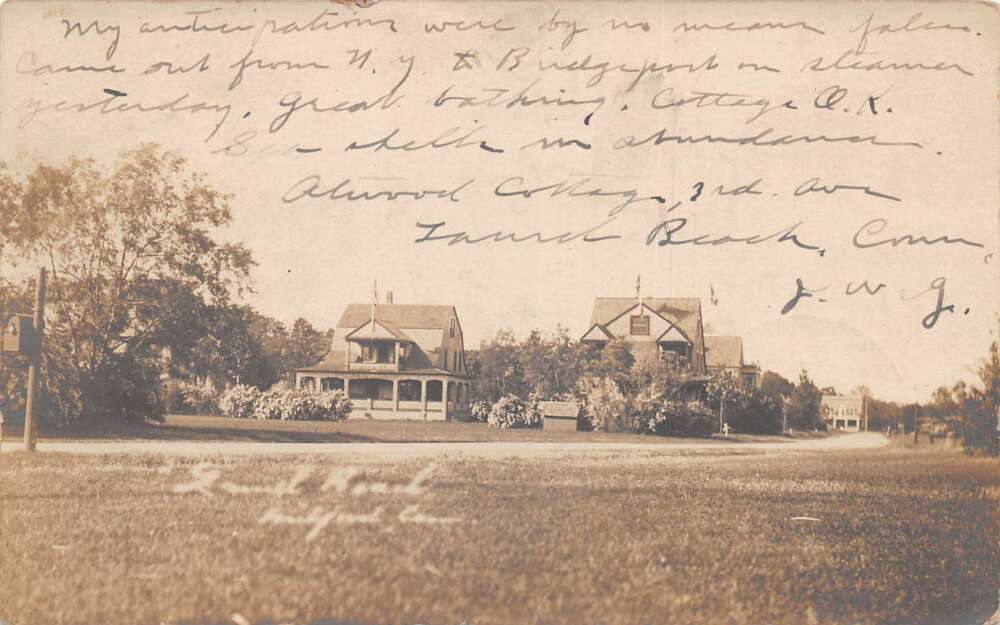 My anticipations were by no means false.
Came out from N.Y to Bridgeport on steamer
yesterday. Great bathing. Cottage O.K.
Sea shells in abundance.
Atwood Cottage, 3rd. Ave
Laurel Beach, Conn
J. W. G.
Laurel Beach
Milford Conn